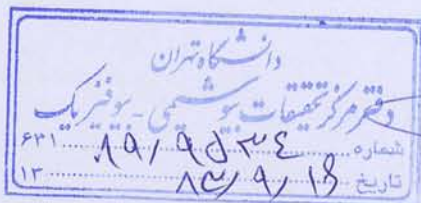 دانشگاه تهران
دفتر مرکز تحقیقات بیوشیمی - بیوفیزیک
شماره ۶۳۱
تاریخ ۱۳